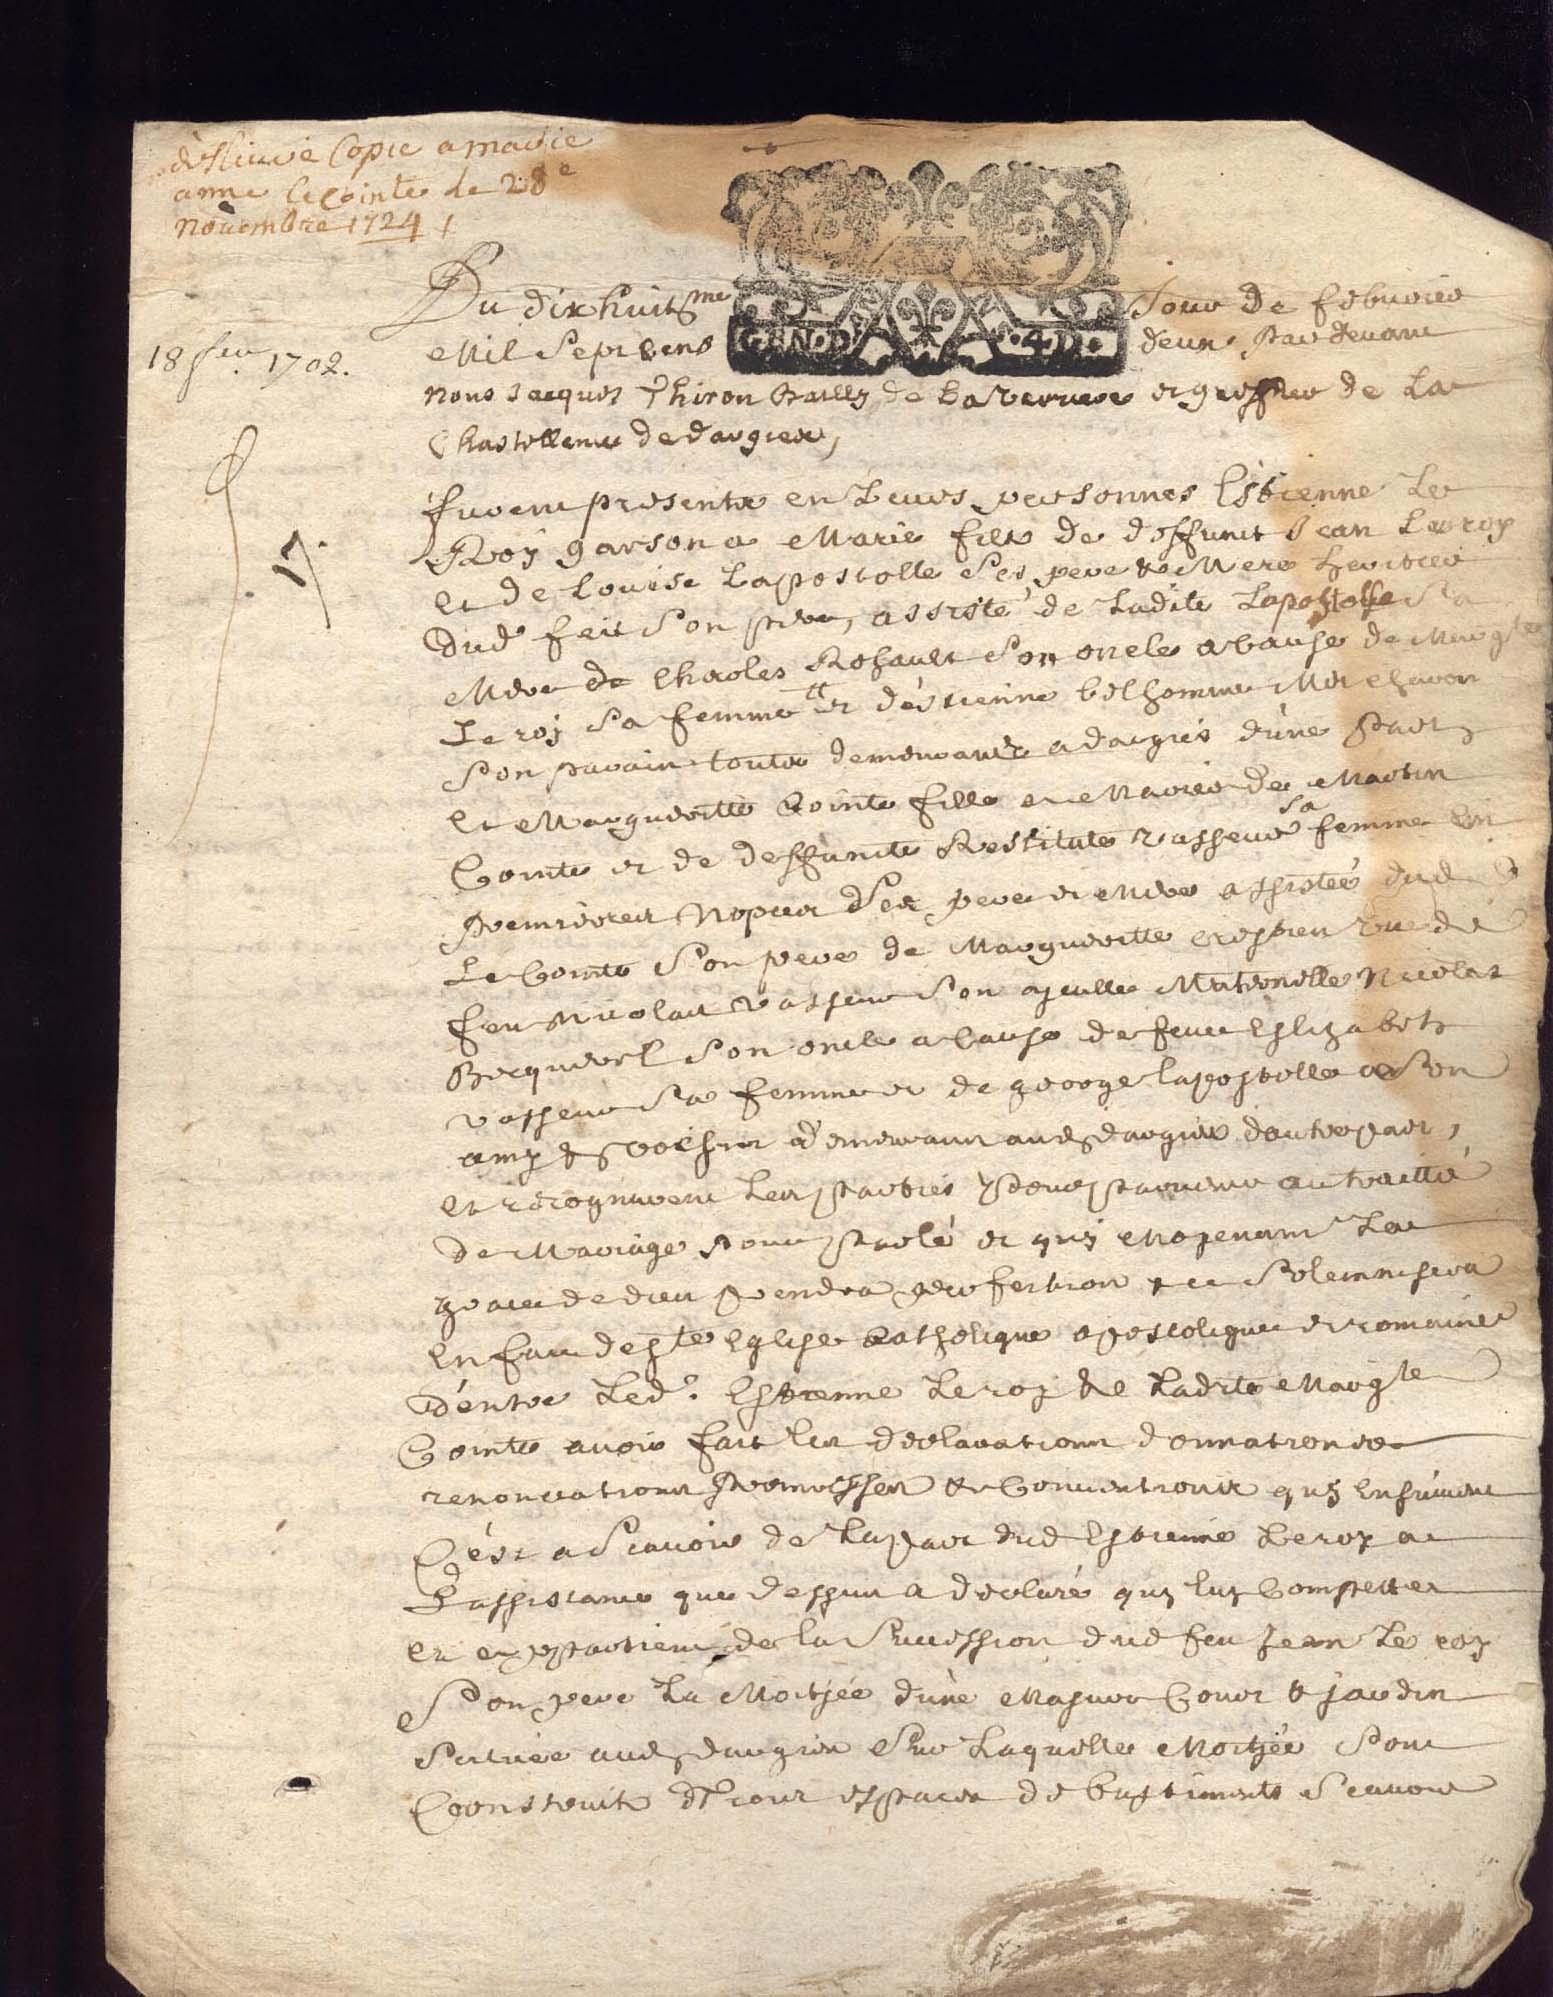 deslivré Copie a marie
anne leCointe le 28e
novembre 1724
18 feu. 1702.
17.
Du dix huit me Jour de febvrier
Mil Sept Cens deux Par devant
GEN. D' 4.D
nous Jacques Thiron Bailly de La Verriere et greffier de La
Chastellenie de dargies,
furent presents en Leurs personnes Estienne Le
Roy garson a Marier filz de deffunct Jean Le roy
et de Louise Lapostolle ses pere & Mere heritier
dud feu Son pere, assisté de Ladite Lapostolle Sa
Mere de Charles Rohault Son oncle a Cause de Margte
Le roy Sa femme et d'estienne belhomme Mre charon
Son parain touts demeurants a dargies d'une Part
Et Margueritte Cointe fille a Marier de Martin
Cointe et de deffuncte Restitute Vasseur sa femme En
premieres Nopces Ses pere et Mere assistée dud
Le Cointe Son pere de Margueritte crespieu vue de
feu Nicolas Vasseur Son ayeulle Maternelle Nicolas
Becquerel Son oncle a Cause de feue Eslizabeth
Vasseur Sa femme et de george Lapostolle Son
amy & voisin demeurants aud dargies d'autre part,
Et recognurent Les parties Pour parvenir au traitté
de Mariage pour parlé et quy Moyenant La
grace de dieu prendra perfection & se Solemnisera
En face de ste Eglise Catholique apostolique et romaine
D'entre Led. Estienne Le roy & Ladite Margte
Cointe avoir fait les declarations donnations
renonciations promesses & Conventions quy Ensuivent
C'est a Scavoir de La part dud Estienne Le roy a
L'assistance que dessus a declaré quy luy Compette
et appartient de la Succession dud feu Jean Le roy
Son pere La Moitjée d'une Masure Cour & jardin
Scituée aud dargies Sur Laquelle Moitjée Sont
Construit espaces de bastiments Scavoir